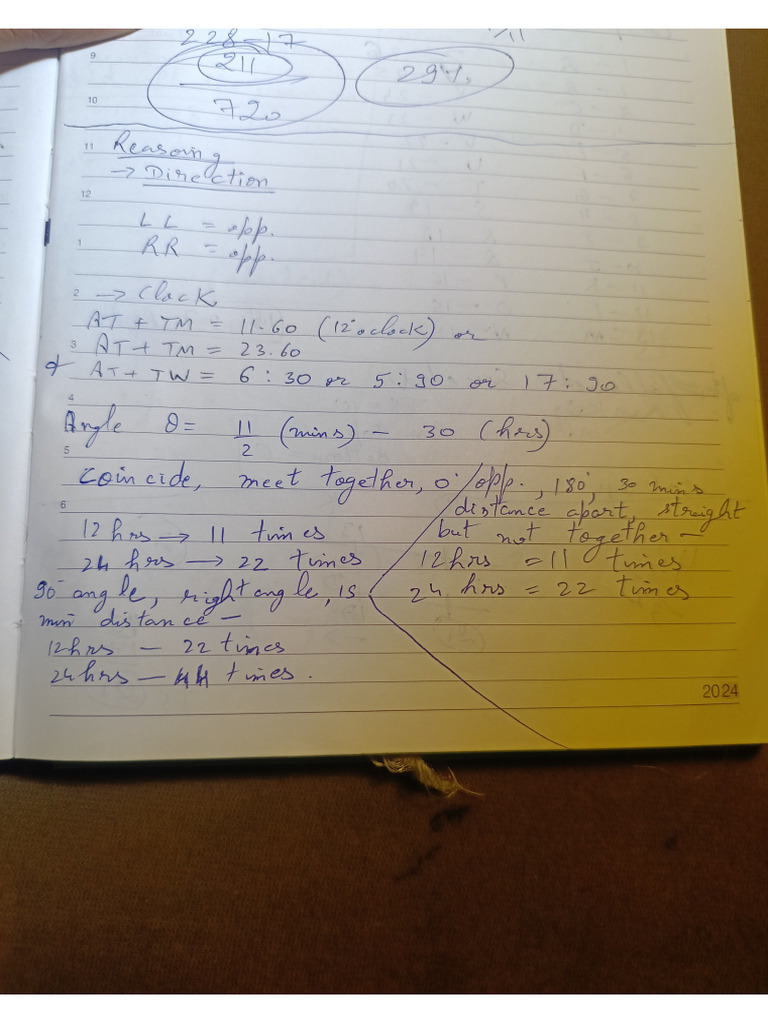 228-17
211
720
29%
9
10
11 Reasoning
→ Direction
12
LL = opp.
1 RR = opp.
2 → Clock
AT + TM = 11.60 (12°oclock) or
3 AT + TM = 23.60
AT + TW = 6:30 or 5:90 or 17:90
4
Angle θ = 11/2 (mins) - 30 (hrs)
5
Coincide, meet together, 0°
6
12 hrs → 11 times
24 hrs → 22 times
opp., 180°, 30 mins
distance apart, streight
but not together -
12hrs = 11 times
24 hrs = 22 times
90° angle, right angle, 15
min distance -
12hrs - 22 times
24hrs - 44 times.
2024